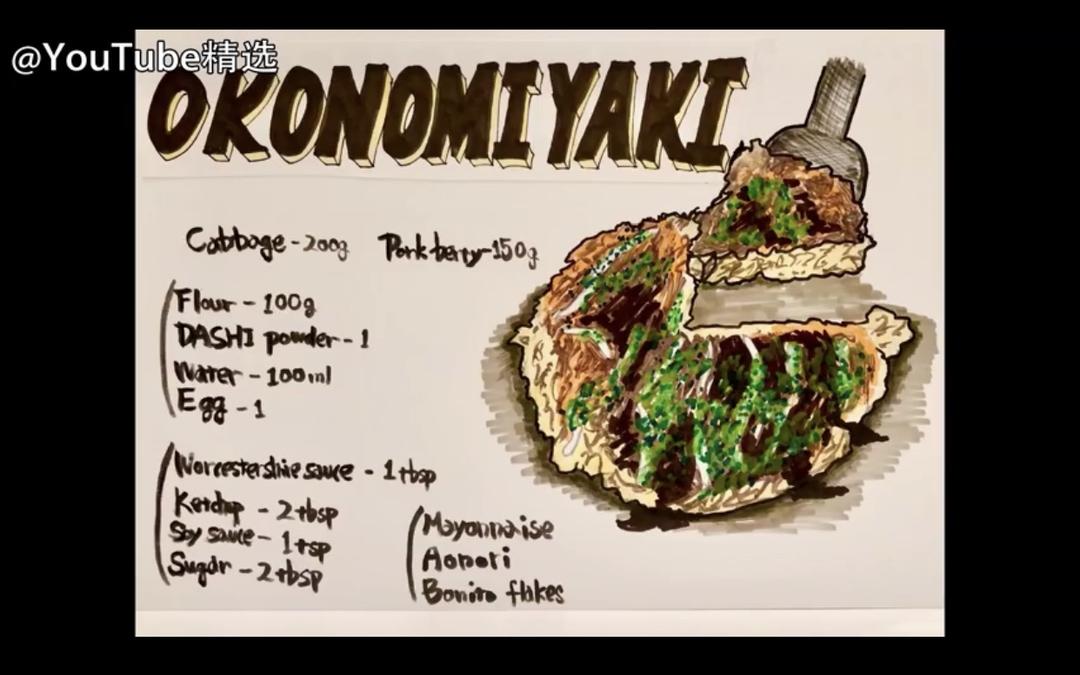 @YouTube精选
OKONOMIYAKI
Cabbage - 200g Pork berry - 150g
Flour - 100g
DASHI powder - 1
Water - 100ml
Egg - 1
Worcestershire sauce - 1 tbsp
Ketchup - 2 tbsp
Soy sauce - 1 tsp
Sugar - 2 tbsp
Mayonnaise
Aonori
Bonito flakes